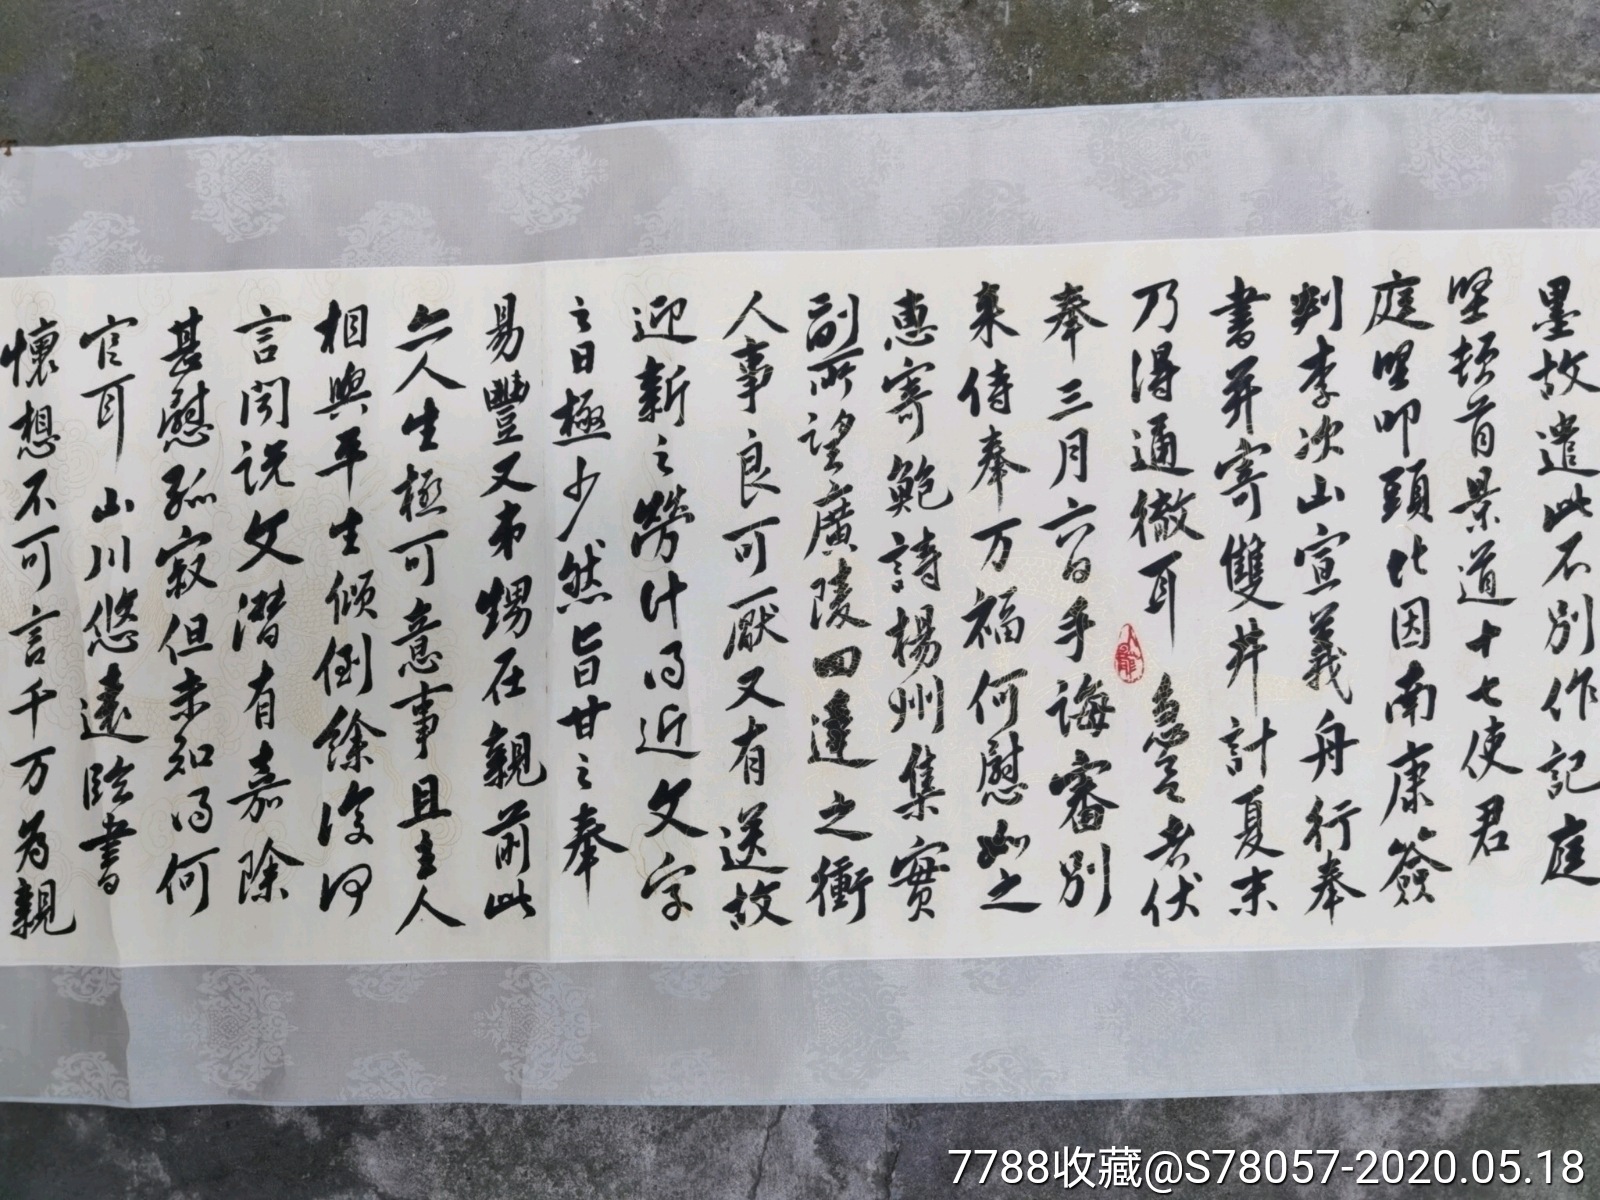 墨故遣此不別作記庭
堅頓首景道十七使君
庭堅叩頭比因南康簽
判李次山宣義舟行奉
書并寄雙井計夏末
乃得通徹耳 急足者伏
奉三月六日手誨審別
来侍奉万福何慰如之
惠寄鮑詩楊州集實
副所望廣陵四達之衝
人事良可厭又有送故
迎新之勞計得近文字
之日極少然旨甘之奉
易豐又弟甥在親前此
亦人生極可意事且主人
相與平生傾倒餘復何
言聞說文潛有嘉除
甚慰孤寂但未知得何
官耳 山川悠遠臨書
懷想不可言千万為親
7788收藏@S78057-2020.05.18